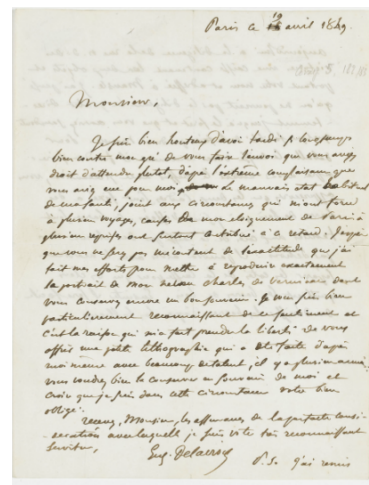 Paris ce 19 avril 1849.
Monsieur,
Je suis bien honteux d'avoir tardé si longtemps
bien contre mon gré de vous faire l'envoi que vous aviez
droit d'attendre plutot, d'après l'extrème complaisance que
vous avez eue pour moi. Le mauvais état habituel
de ma santé, joint aux circonstances qui m'ont forcé
à plusieurs voyages, causes de mon éloignement de Paris à
plusieurs reprises ont surtout contribué à ce retard. J'espère
que vous ne serez pas mécontent de l'exactitude que j'ai
fait mes efforts pour mettre à reproduire exactement
le portrait de mon neveu Charles de Verninac dont
vous conservez encore un bon souvenir. Je vous suis bien
particulièrement reconnaissant de ce sentiment et
c'est la raison qui m'a fait prendre la liberté de vous
offrir une petite lithographie qui a été faite d'après
moi même avec beaucoup de talent, il y a plusieurs années.
vous voudrez bien la conserver en souvenir de moi et
croire que je suis dans cette circonstance votre bien
obligé.
recevez, Monsieur, les assurances de la parfaite consi-
dération avec laquelle je suis votre très reconnaissant
serviteur,
Eug. Delacroix
P.S. j'ai remis